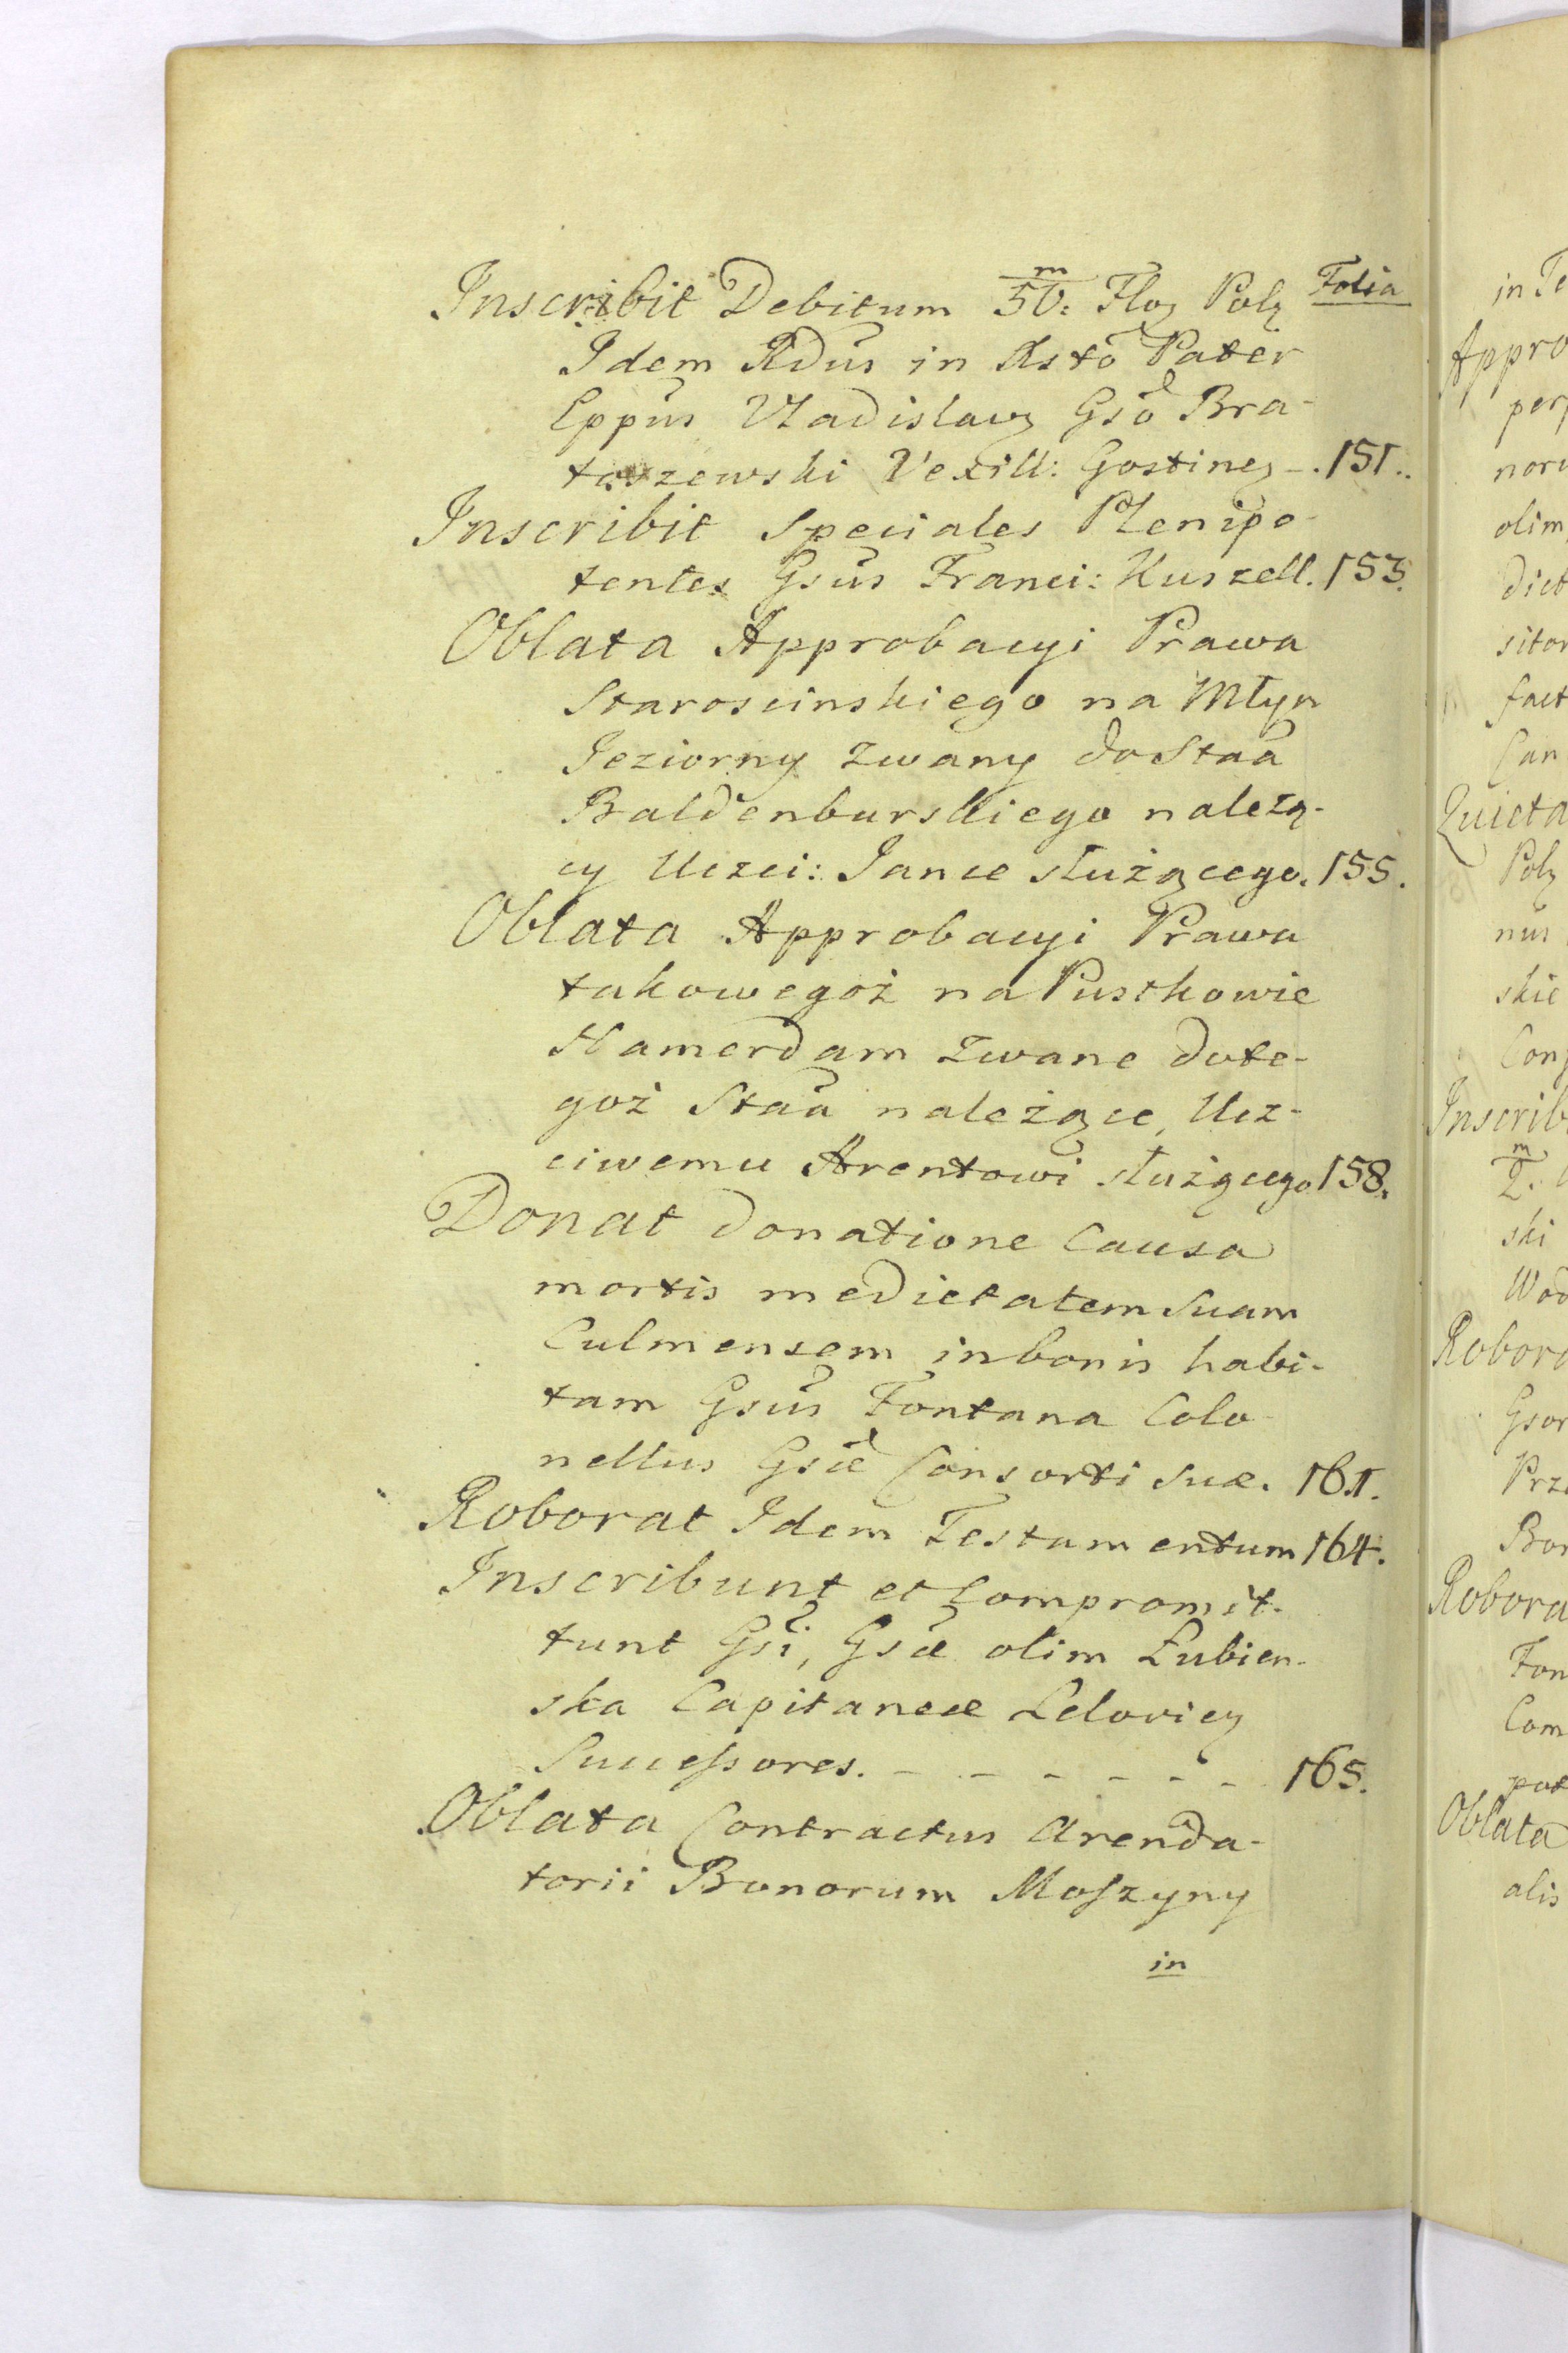 Folia
Inscribit Debitum 50: Floz Polz
m
Idem Rdus in Xsto Pater
Eppus Vladislavz Gso Bra-
toszewski Vexill: Gostinez -. 151.
Inscribit Speciales Plenipo-
tentes Gsus Franci: Kuszell. 153.
Oblata Approbacyi Prawa
Staroscinskiego na Młyn
Jeziorny zwany do Staa
Baldenburskiego należą-
cy Uczci: Jance służącego. 155.
Oblata Approbacyi Prawa
takowegoż na Pustkowie
Hamerdam zwane do te-
goż Staa należące, Ucz-
ciwemu Arentowi służącego 158.
Donat donatione Causa
mortis medietatem Suam
Culmensem in bonis habi-
tam Gsus Fontana Colo-
nellus Gsæ Consorti suæ. 161.
Roborat Idem Testamentum 164.
Inscribunt et Compromit-
tunt Gsi, Gsæ olim Łubien-
ska Capitaneæ Leloviez
Successores. - - - - - - 165.
Oblata Contractus Arenda-
torii Bonorum Moszyny
in
in Te
Appro
per
noru
olim
dict
sitor
fact
Can
Quieta
Polz
nus
skie
Con
Inscrib
m
2.
ski
Wod
Robora
Gsor
Prz
Bor
Robora
Fon
Com
pot
Oblata
alis